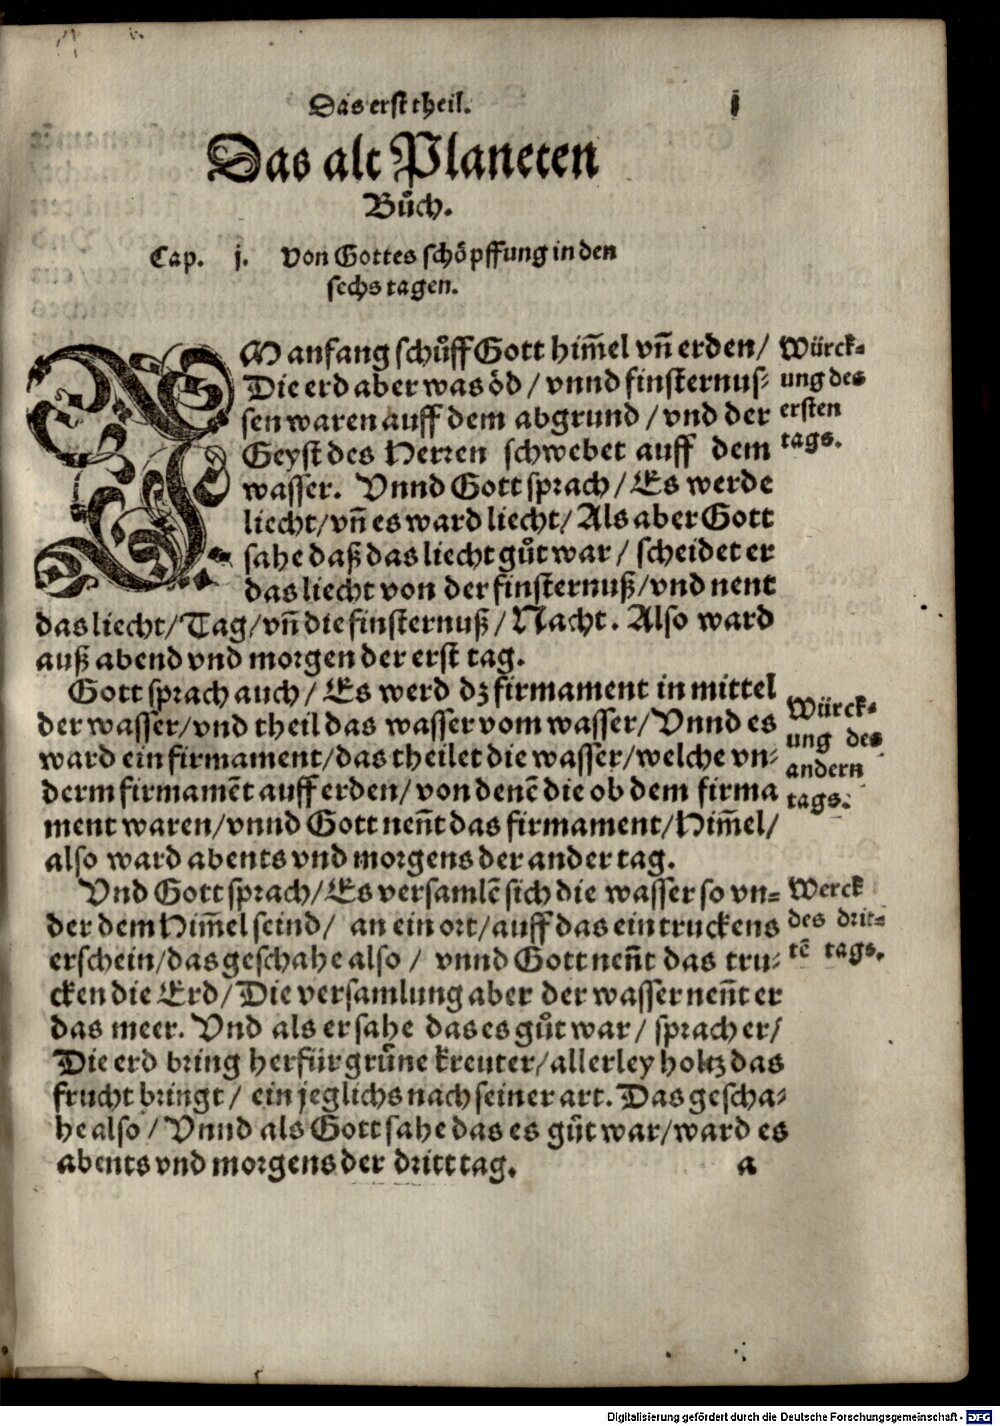 Das erst theil.
j
Das alt Planeten
Bůch.
Cap. j. Von Gottes schöpffung in den
sechs tagen.
IM anfang schůff Gott him̃el vñ erden/
Die erd aber was öd/ vnnd finsternus-
sen waren auff dem abgrund/vnd der
Geyst des Herren schwebet auff dem
wasser. Vnnd Gott sprach/Es werde
liecht/vñ es ward liecht/Als aber Gott
sahe daß das liecht gůt war/ scheidet er
das liecht von der finsternuß/vnd nent
das liecht/Tag/vñ die finsternuß/Nacht. Also ward
auß abend vnd morgen der erst tag.
Würck-
ung des
ersten
tags.
Gott sprach auch/ Es werd dz firmament in mittel
der wasser/vnd theil das wasser vom wasser/Vnnd es
ward ein firmament/das theilet die wasser/welche vn-
derm firmamẽt auff erden/von denẽ die ob dem firma
ment waren/vnnd Gott neñt das firmament/Him̃el/
also ward abents vnd morgens der ander tag.
Würck-
ung des
andern
tags.
Vnd Gott sprach/Es versamlẽ sich die wasser so vn-
der dem Him̃el seind/ an ein ort/auff das ein truckens
erschein/das geschahe also/ vnnd Gott neñt das tru-
cken die Erd/Die versamlung aber der wasser neñt er
das meer. Vnd als er sahe das es gůt war/ sprach er/
Die erd bring herfür grůne kreuter/allerley holtz das
frucht bringt/ ein jeglichs nach seiner art. Das gescha-
he also/Vnnd als Gott sahe das es gůt war/ward es
abents vnd morgens der dritt tag.
Werck
des drit-
tẽ tags.
a
Digitalisierung gefördert durch die Deutsche Forschungsgemeinschaft - DFG